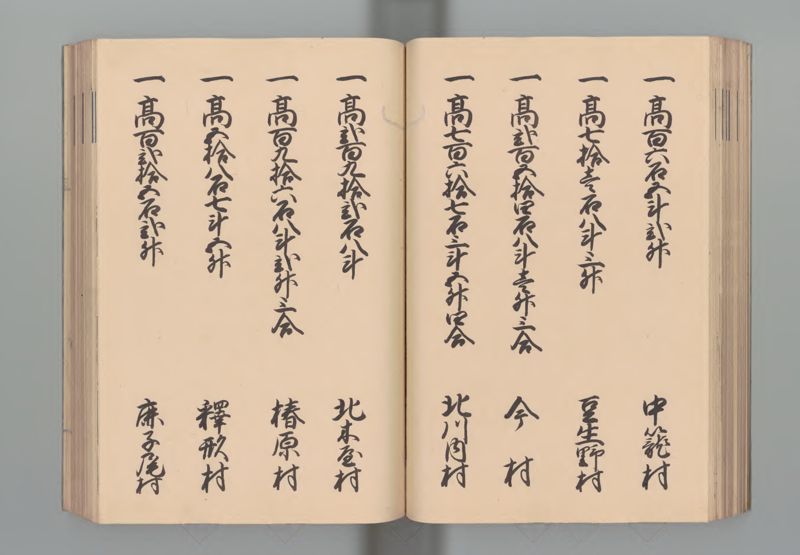 一高百六石五斗弐升 中籠村
一高七拾壱石八斗三升 豆生野村
一高弐百五拾四石八斗壱升三合 今村
一高七百六拾七石三斗五升四合 北川内村
一高弐百九拾弐石八斗 北木屋村
一高百九拾六石八斗弐升三合 椿原村
一高五拾八石七斗五升 釋形村
一高百弐拾五石弐升 麻子尾村